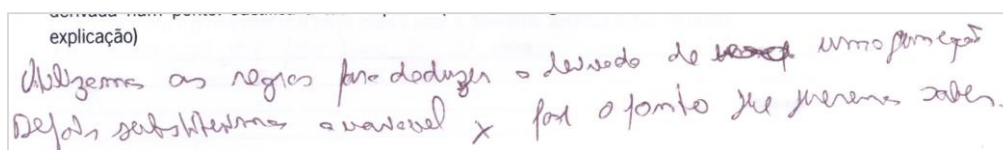 explicação)
Utilizamos as regras para deduzir a derivada de uma função
Depois substituimos a variavel x por o ponto que queremos saber.